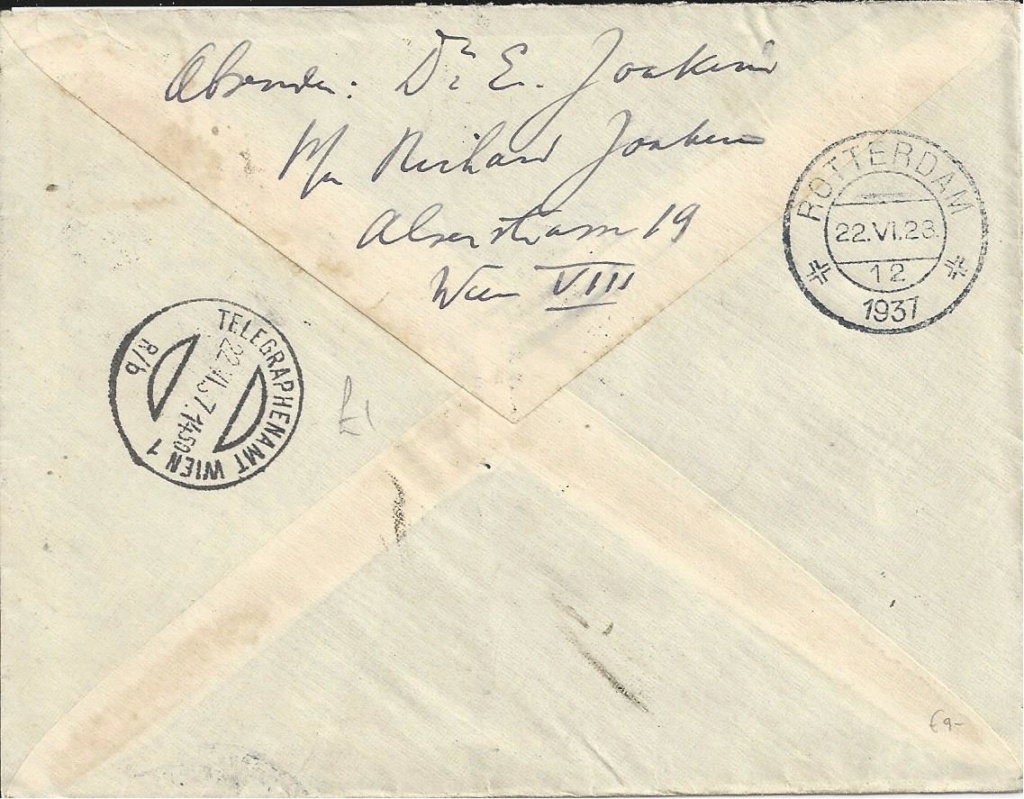 Absender: Dr E. Joakim
p/a Richard Joakim
Alserstrasse 19
Wien VIII
ROTTERDAM
22.VI.23.
12
1937
TELEGRAPHENAMT WIEN 1
22.VI.37.1450
R/b
£1
€9-